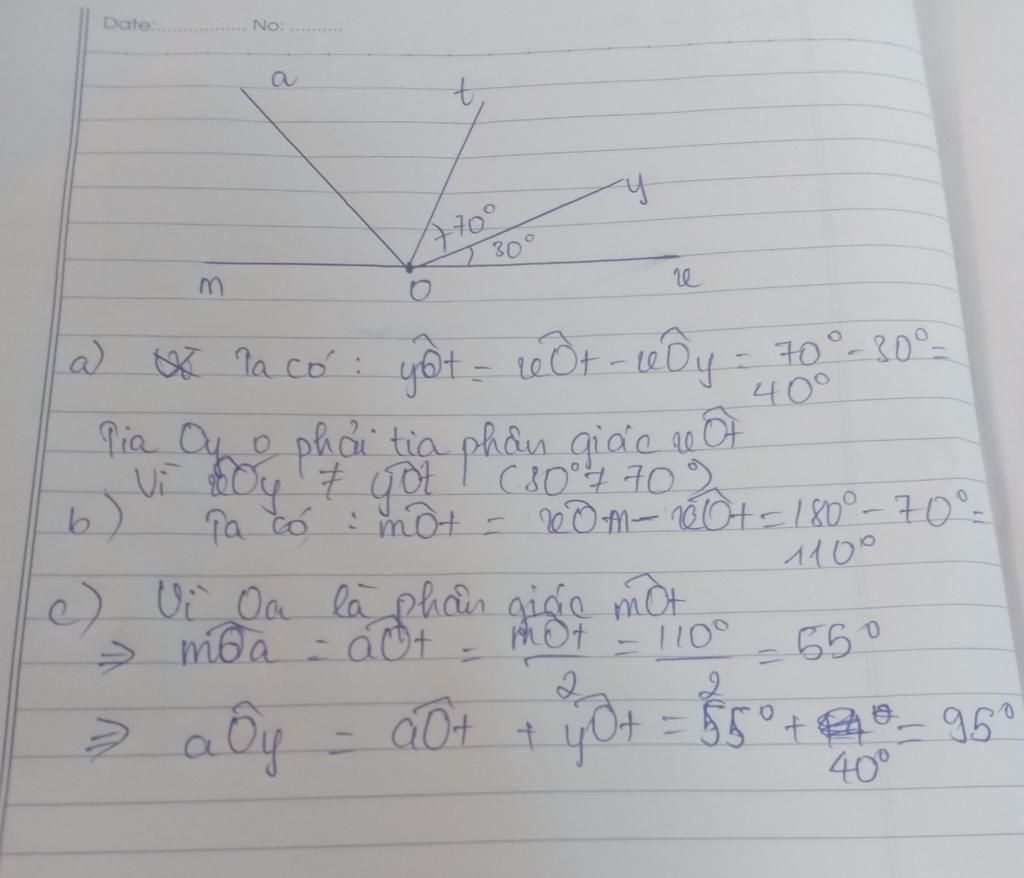 Date:................. No: ..........
a
t
y
70°
30°
m
O
x
a) Ta có : yÔt = xÔt - xÔy = 70° - 30° =
40°
Tia Oy o phải tia phân giác xÔt
Vì xÔy ≠ yÔt (30° ≠ 70°)
b) Ta có : mÔt = xÔm - xÔt = 180° - 70° =
110°
c) Vì Oa là phân giác mÔt
=> mÔa = aÔt = mÔt/2 = 110°/2 = 55°
=> aÔy = aÔt + yÔt = 55° + 40° = 95°